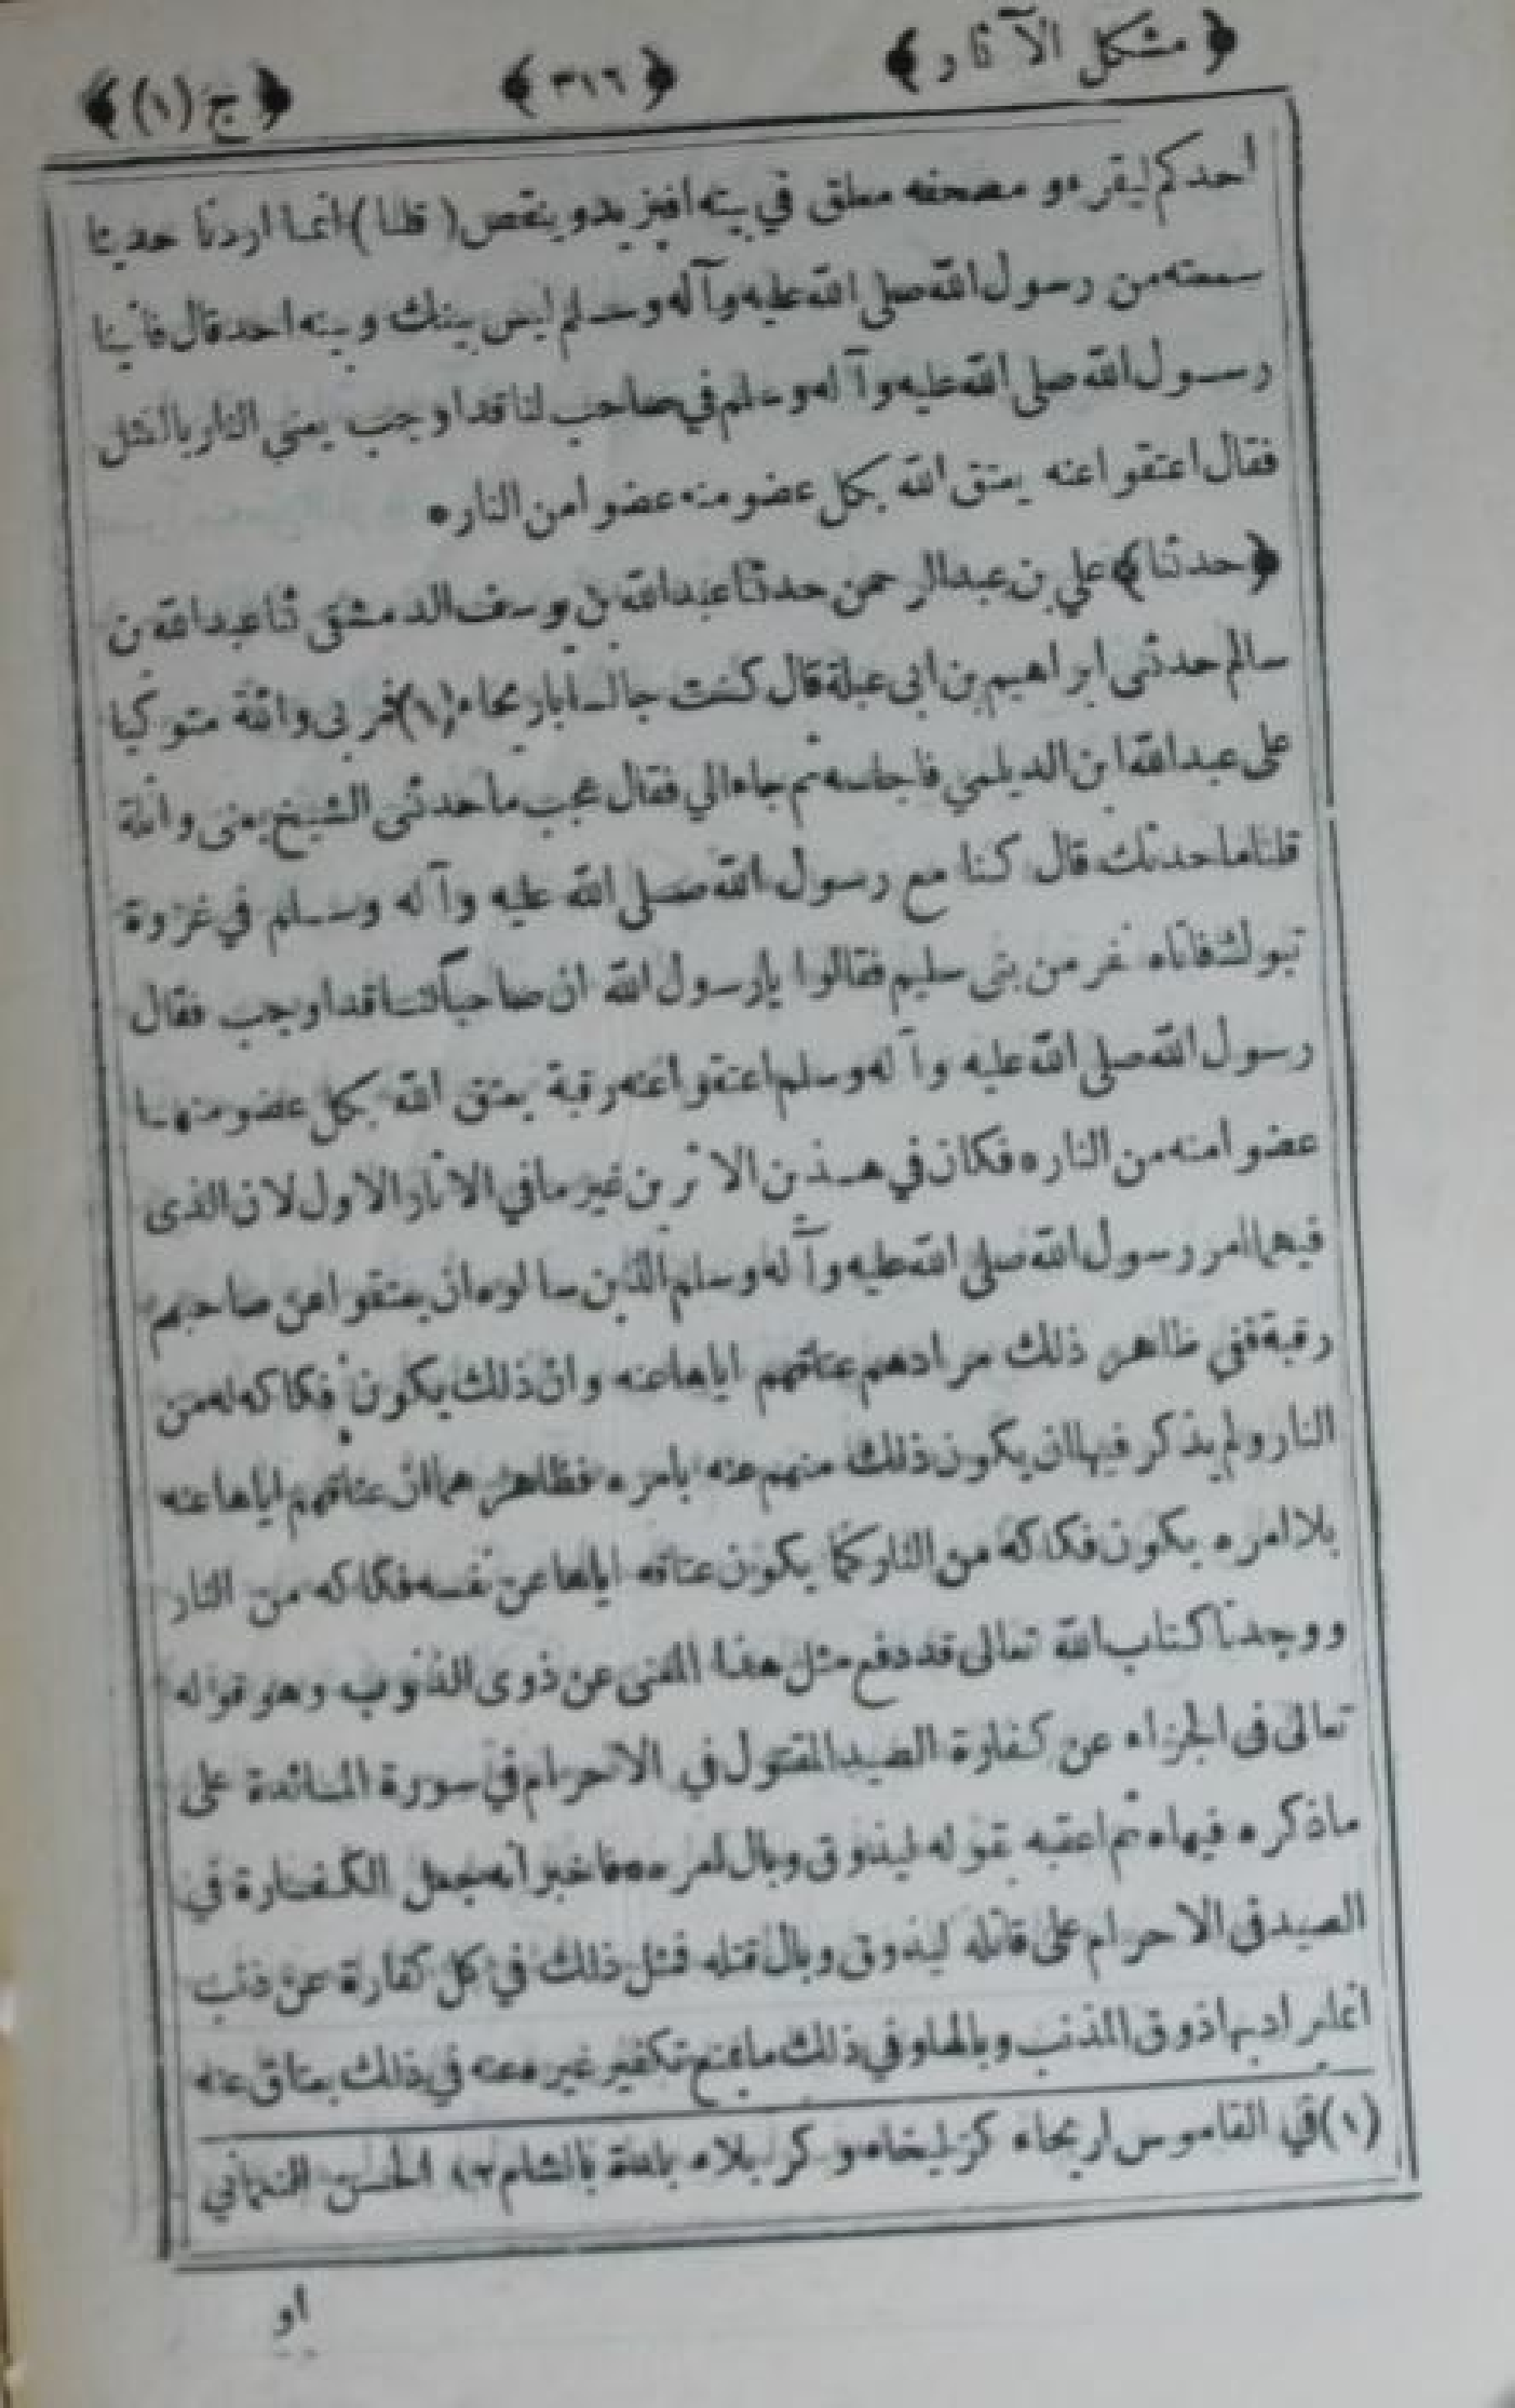 ﴿ مشكل الآثار ﴾ ﴿ ٣١٦ ﴾ ﴿ ج (١) ﴾
احدكم ليقرء و مصحفه معلق في بيته افيزيد وينقص (قلنا) انما اردنا حديثا
سمعته من رسول الله صلى الله عليه وآله وسلم ليس بينك وبينه احد قال فاتينا
رسول الله صلى الله عليه وآله وسلم في صاحب لنا قد اوجب يعني النار بالقتل
فقال اعتقوا عنه يعتق الله بكل عضو منه عضوا من النار *
﴿ حدثنا ﴾ علي بن عبد الرحمن حدثنا عبد الله بن يوسف الدمشقي ثنا عبد الله بن
سالم حدثني ابراهيم بن ابي عبلة قال كنت جالسا باريحاء (١) فمر بي واثلة متوكيا
على عبد الله ابن الديلمي فاجلسه ثم جاء الي فقال عجب ما حدثني الشيخ يعني واثلة
قلنا ما حدثك قال كنا مع رسول الله صلى الله عليه وآله وسلم في غزوة
تبوك فاتاه نفر من بني سليم فقالوا يا رسول الله ان صاحبا لنا قد اوجب فقال
رسول الله صلى الله عليه وآله وسلم اعتقوا عنه رقبة يعتق الله بكل عضو منها
عضوا منه من النار * فكان في هذين الاثرين غير ما في الآثار الاول لان الذي
فيهما امر رسول الله صلى الله عليه وآله وسلم الذين سالوه ان يعتقوا عن صاحبهم
رقبة ففي ظاهر ذلك مرادهم عتاقهم اياها عنه وان ذلك يكون فكاكه له من
النار ولم يذكر فيها ان يكون ذلك منهم عنه بامره فظاهرهما ان عتاقهم اياها عنه
بلا امره يكون فكاكه من النار كما يكون عتاقه اياها عن نفسه فكاكه من النار
ووجدنا كتاب الله تعالى قد دفع مثل هذا المعنى عن ذوي الذنوب وهو قوله
تعالى في الجزاء عن كفارة الصيد المقتول في الاحرام في سورة المائدة على
ما ذكره فيها * ثم اعقبه بقوله ليذوق وبال امره * فاخبر انه جعل الكفارة في
الصيد في الاحرام على قاتله ليذوق وبال قتله فمثل ذلك في كل كفارة عن ذنب
انما يراد بها ذوق المذنب وبالها وفي ذلك ما يمنع تكفير غيره عنه في ذلك بعتاق عنه
(١) في القاموس اريحاء كزليخاء و كربلاء بلدة بالشام ١٢ الحسن النعماني
او